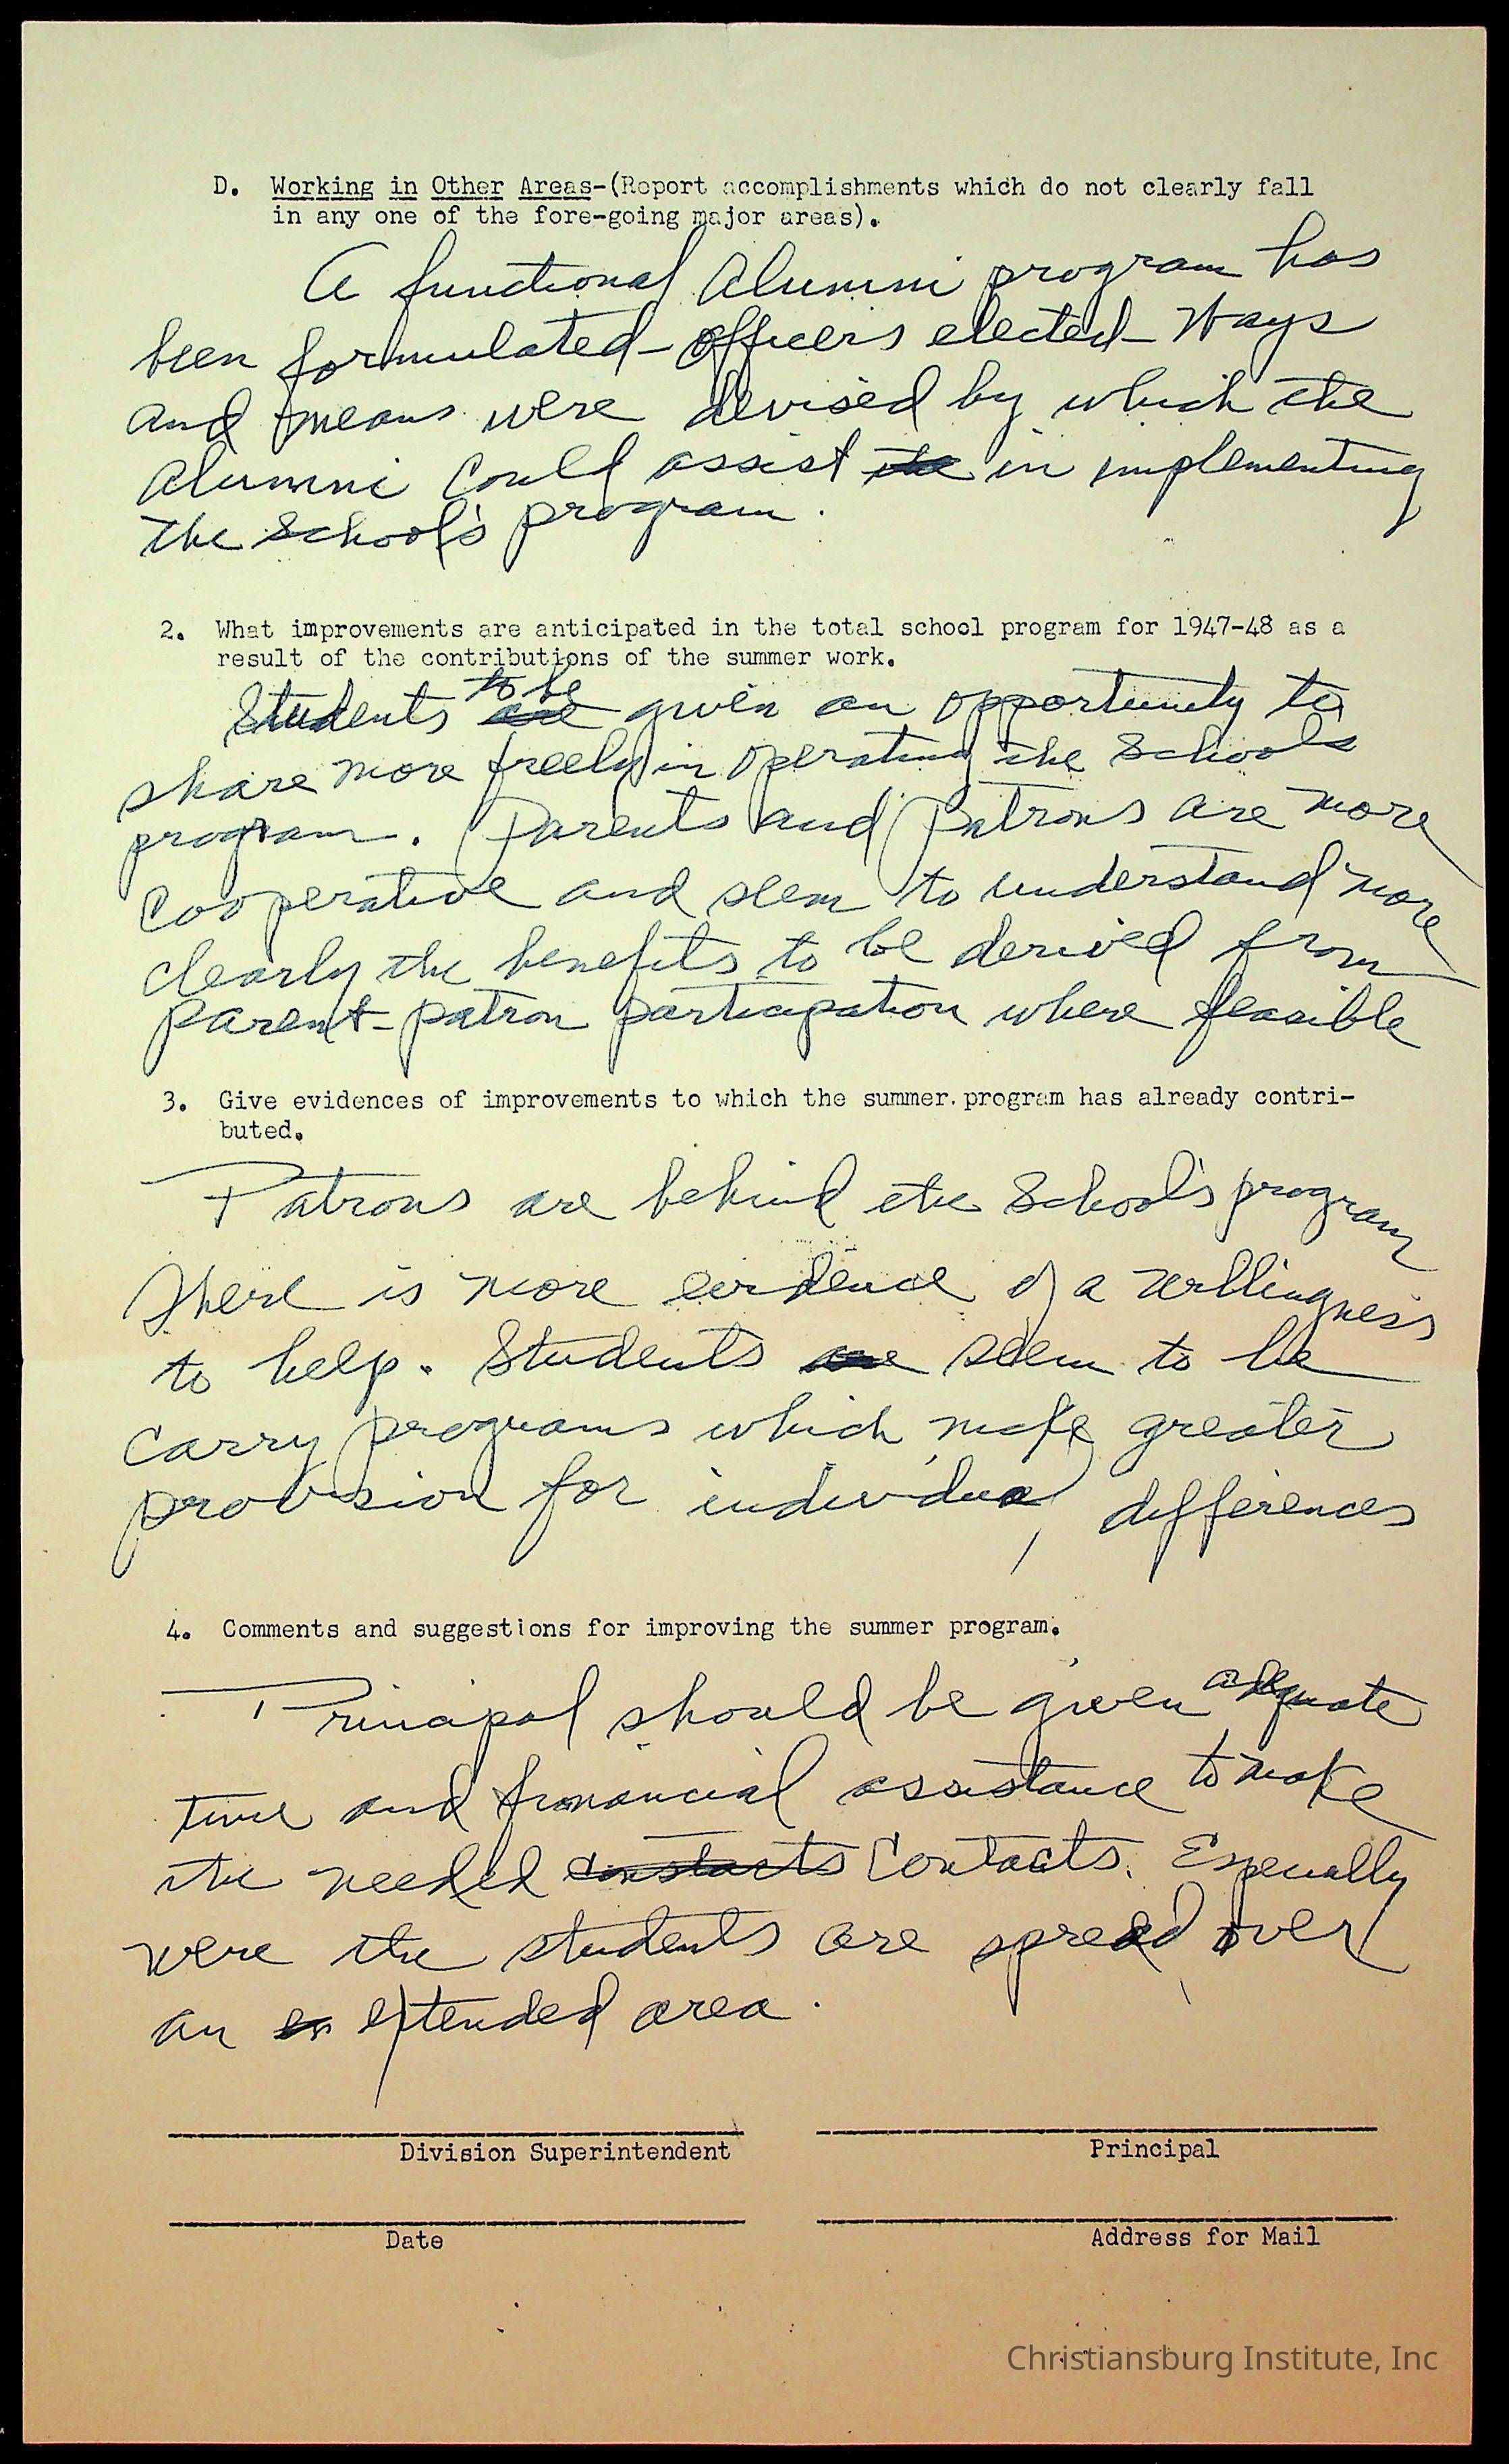 D. Working in Other Areas-(Report accomplishments which do not clearly fall
in any one of the fore-going major areas).
A functional Alumni program has
been formulated - officers elected - Ways
and means were devised by which the
Alumni could assist the in implementing
the School's program.
2. What improvements are anticipated in the total school program for 1947-48 as a
result of the contributions of the summer work.
to be
Students are given an opportunity to
share more freely in operating the School's
program. Parents and Patrons are more
cooperative and seem to understand more
clearly the benefits to be derived from
parent-patron participation where feasible
3. Give evidences of improvements to which the summer program has already contri-
buted.
Patrons are behind the School's program
There is more evidence of a willingness
to help. Students are seem to be
carry programs which make greater
provision for individual differences
4. Comments and suggestions for improving the summer program.
Principal should be given adequate
time and finanancial assistance to make
the needed constacts Contacts. Especially
were the students are spread over
an en extended area.
Division Superintendent Principal
Date Address for Mail
Christiansburg Institute, Inc